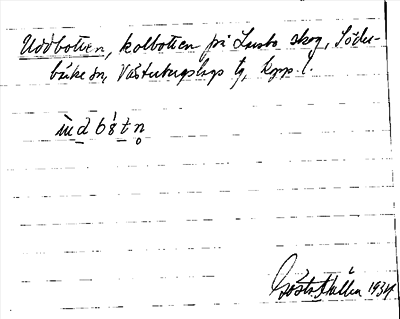 Uddbotten, kolbotten på Lusbo skog, Söder-
bärke sn, Västerbergslags tg, Kopp. l.
ùdbòtn̥
Gösta Källén 1934